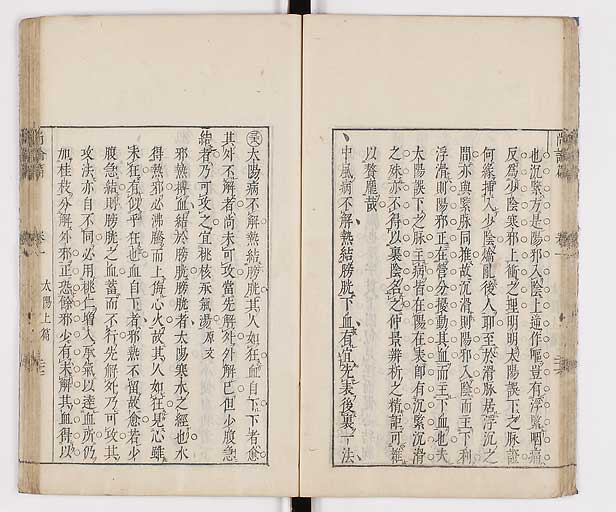 也沉緊方是陽邪入陰上逆作嘔豈有浮緊咽痛
反為少陰寒邪上衝之理明明太陽誤下之脉證
何緣揷入少陰嬌亂後人耶至於滑脉居浮沉之
間亦與緊脉同推故沉滑則陽邪入陰而主下利
浮滑則陽邪正在營分擾動其血而主下血也夫
太陽誤下之脉主病皆在陽在表即有沉緊沉滑
之殊亦不得以裏陰名之仲景辨析之精詎可雜
以贅龐哉
中風病不解熱結膀胱下血有宜先表後裏一法
太陽病不解熱結膀胱其人如狂血自下下者愈
其外不解者尚未可攻當先解外外解已但少腹急
結者乃可攻之宜桃核承氣湯原文
邪熱搏血結於膀胱膀胱者太陽寒水之經也水
得熱邪必沸騰而上侮心火故其人如狂見心雖
未狂有似乎狂也血自下者邪熱不留故愈若少
腹急結則膀胱之血蓄而不行先解外乃可攻其
攻法亦自不同必用桃仁增入承氣以達血所仍
加桂枝分解外邪正恐餘邪少有未解其血得以
尚論篇 卷一
太陽上篇